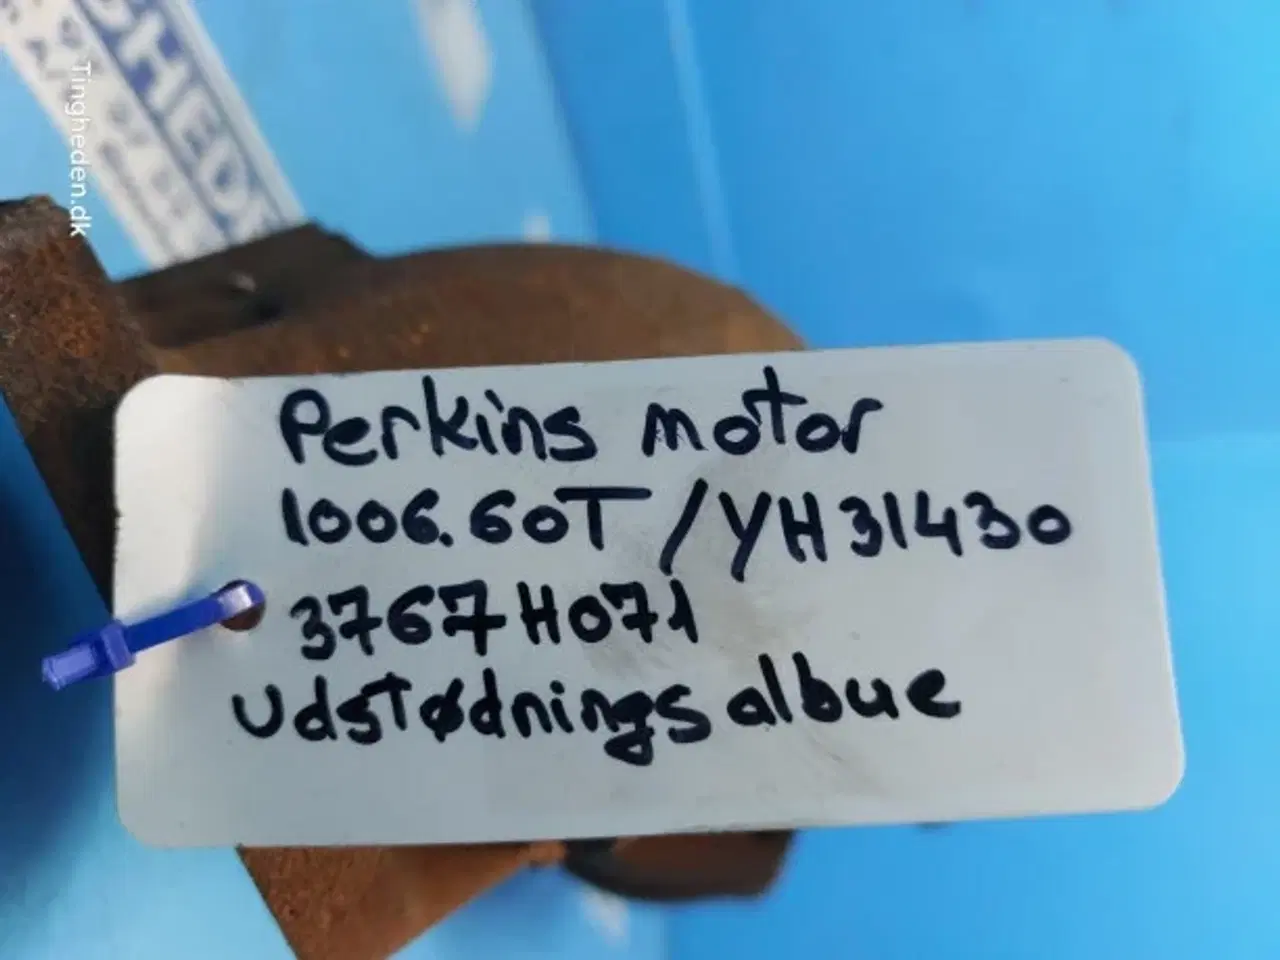 Tingheden.dk
Perkins motor
1006.60T/YH31430
3767H071
Udstødnings albue